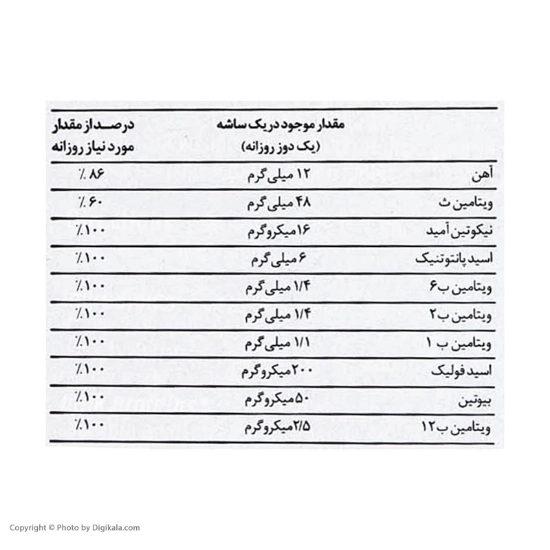 مقدار موجود در یک ساشه (یک دوز روزانه) درصد از مقدار مورد نیاز روزانه
آهن ۱۲ میلی‌گرم ۸۶ ٪
ویتامین ث ۴۸ میلی‌گرم ۶۰ ٪
نیکوتین آمید ۱۶ میکروگرم ۱۰۰٪
اسید پانتوتنیک ۶ میلی‌گرم ۱۰۰٪
ویتامین ب۶ ۱/۴ میلی‌گرم ۱۰۰٪
ویتامین ب۲ ۱/۴ میلی‌گرم ۱۰۰٪
ویتامین ب ۱ ۱/۱ میلی‌گرم ۱۰۰٪
اسید فولیک ۲۰۰ میکروگرم ۱۰۰٪
بیوتین ۵۰ میکروگرم ۱۰۰٪
ویتامین ب۱۲ ۲/۵ میکروگرم ۱۰۰٪
Copyright © Photo by Digikala.com